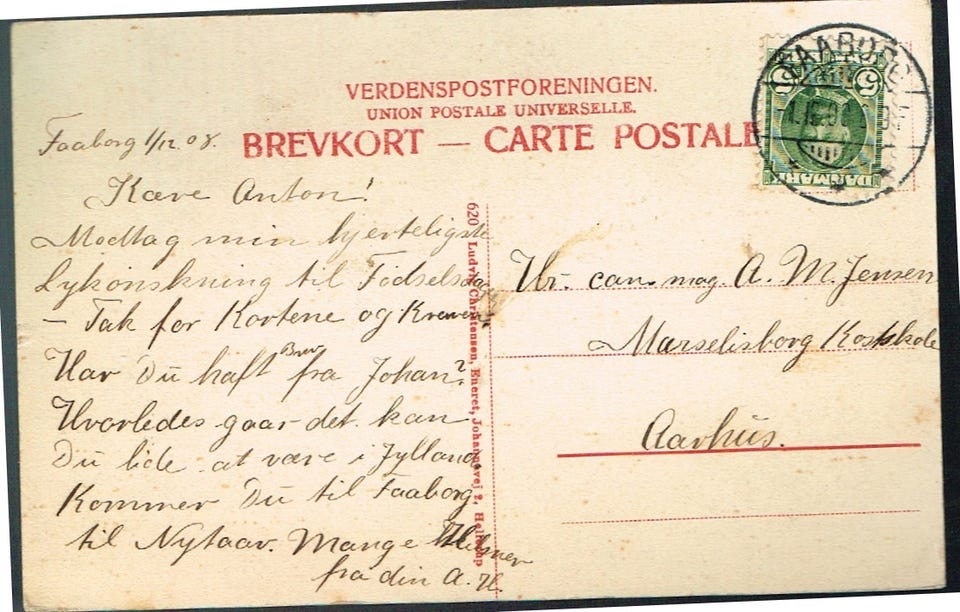 VERDENSPOSTFORENINGEN.
UNION POSTALE UNIVERSELLE.
BREVKORT — CARTE POSTALE
FAABORG
1.12.0
5 5
DANMARK
Faaborg 1/12 08.
Kære Anton!
Modtag min hjerteligste
Lykønskning til Fødselsdag
– Tak for Kortene og
Har Du haft Brev fra Johan?
Hvorledes gaar det. kan
Du lide at være i Jylland,
Kommer Du til Faaborg
til Nytaar. Mange Hilsner
fra din A. H.
620 Ludvig Christensen, Eneret, Johannevej 2, Hellerup
Hr. can. mag. A. M. Jensen
Marselisborg Kostskole
Aarhus.